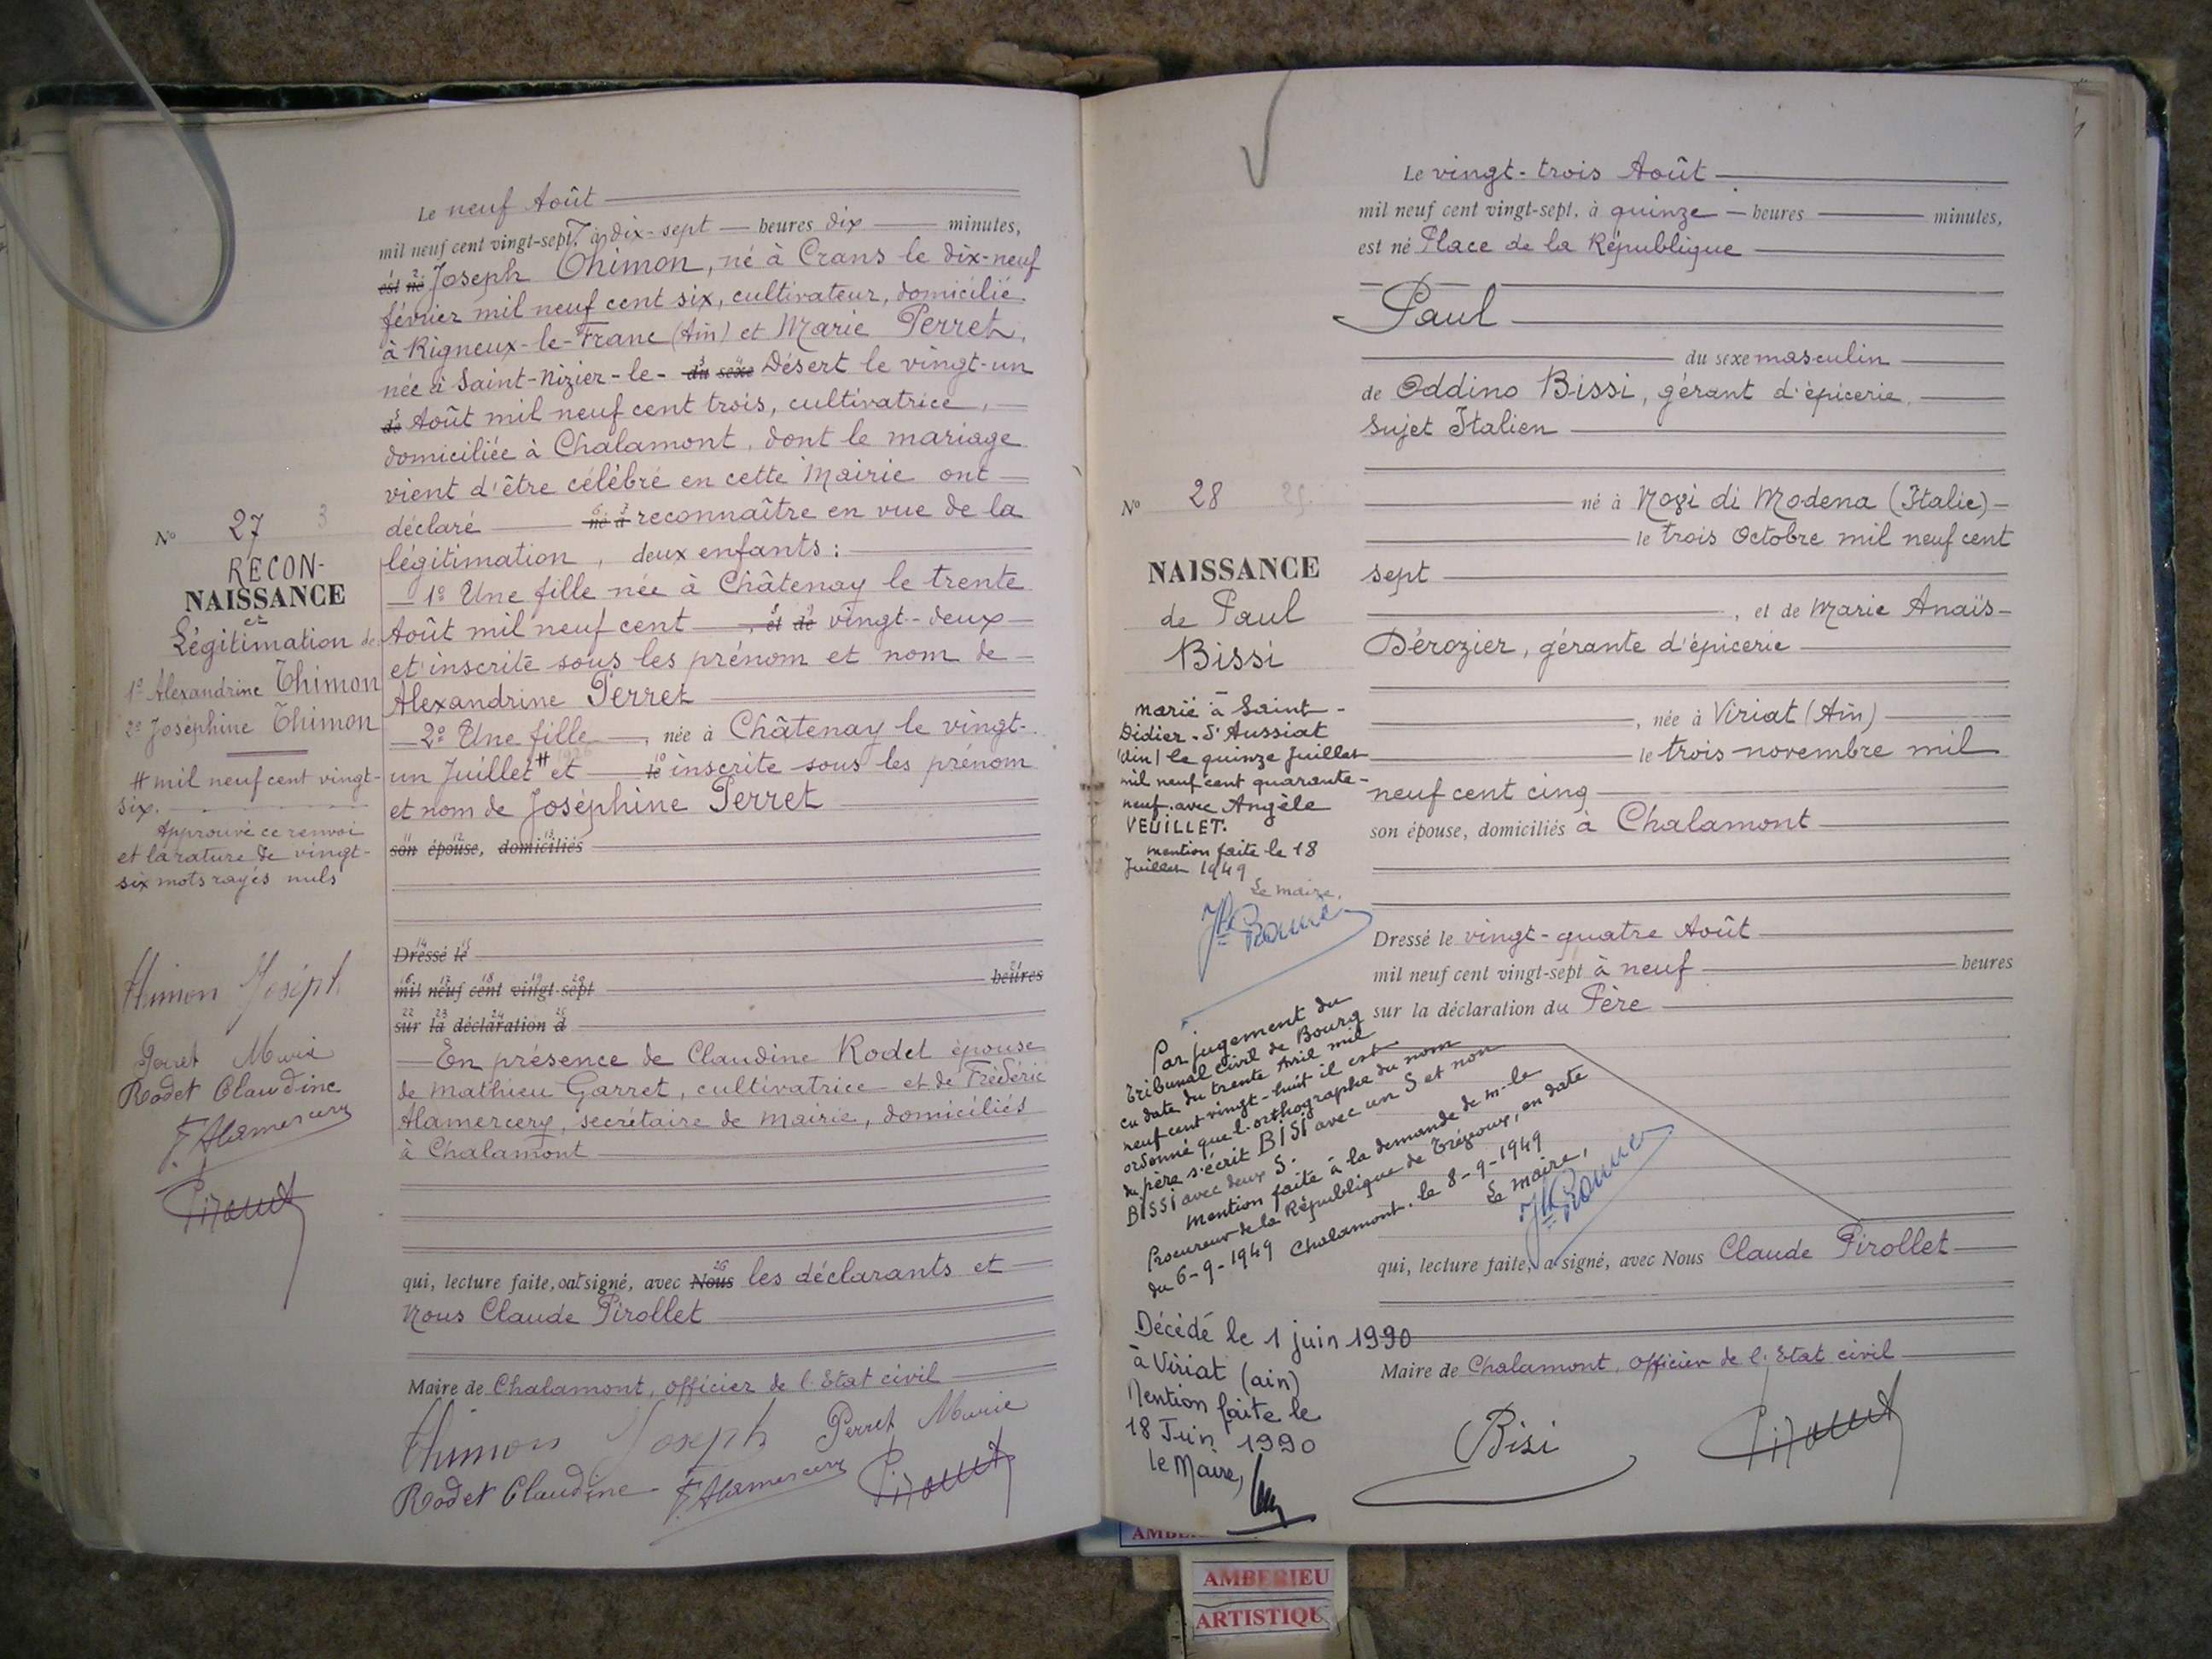 Le neuf Août
mil neuf cent vingt-sept, à dix-sept heures dix minutes,
est né Joseph Thimon, né à Crans le dix-neuf
février mil neuf cent six, cultivateur, domicilié
à Rigneux-le-Franc (Ain) et Marie Perret,
née à Saint-Nizier-le- du sexe Désert le vingt-un
de Août mil neuf cent trois, cultivatrice,
domiciliée à Chalamont, dont le mariage
vient d'être célébré en cette Mairie ont
déclaré né à reconnaître en vue de la
légitimation, deux enfants :
1º Une fille née à Châtenay le trente
Août mil neuf cent , et de vingt-deux
et inscrite sous les prénom et nom de
Alexandrine Perret
2º Une fille , née à Châtenay le vingt-
un Juillet # et le inscrite sous les prénom
et nom de Joséphine Perret
son épouse, domiciliés
Dressé le
mil neuf cent vingt-sept heures
sur la déclaration d
En présence de Claudine Rodet épouse
de Mathieu Garret, cultivatrice et de Frédéric
Alamercery, secrétaire de Mairie, domiciliés
à Chalamont
qui, lecture faite, ont signé, avec Nous les déclarants et
Nous Claude Pirollet
Maire de Chalamont, officier de l'Etat civil
Thimon Joseph Perret Marie
Rodet Claudine F. Alamercery Pirollet
Nº 27 3
RECON-
NAISSANCE
et
Légitimation de
1º Alexandrine Thimon
2º Joséphine Thimon
# mil neuf cent vingt-
six.
Approuvé ce renvoi
et la rature de vingt-
six mots rayés nuls
Thimon Joseph
Perret Marie
Rodet Claudine
F. Alamercery
Pirollet
Le vingt-trois Août
mil neuf cent vingt-sept, à quinze heures minutes,
est né Place de la République
Paul
du sexe masculin
de Oddino Bissi, gérant d'épicerie,
Sujet Italien
né à Novi di Modena (Italie)
le trois Octobre mil neuf cent
sept
, et de Marie Anaïs
Dérozier, gérante d'épicerie
, née à Viriat (Ain)
le trois novembre mil
neuf cent cinq
son épouse, domiciliés à Chalamont
Dressé le vingt-quatre Août
mil neuf cent vingt-sept à neuf heures
sur la déclaration du Père
qui, lecture faite, a signé, avec Nous Claude Pirollet
Maire de Chalamont, officier de l'Etat civil
Bisi Pirollet
Nº 28
NAISSANCE
de Paul
Bissi
marié à Saint-
Didier-d'Aussiat
(Ain) le quinze Juillet
mil neuf cent quarante-
neuf avec Angèle
VEUILLET.
Mention faite le 18
Juillet 1949
Le maire,
Par jugement du
Tribunal Civil de Bourg
en date du trente Avril mil
neuf cent vingt-huit il est
ordonné que l'orthographe du nom
du père s'écrit BISI avec un S et non
BISSI avec deux S.
Mention faite à la demande de M. le
Procureur de la République de Trévoux, en date
du 6-9-1949 Chalamont, le 8-9-1949
Le maire,
Décédé le 1 juin 1990
à Viriat (ain)
Mention faite le
18 Juin 1990
le Maire,
AMBERIEU
ARTISTIQU